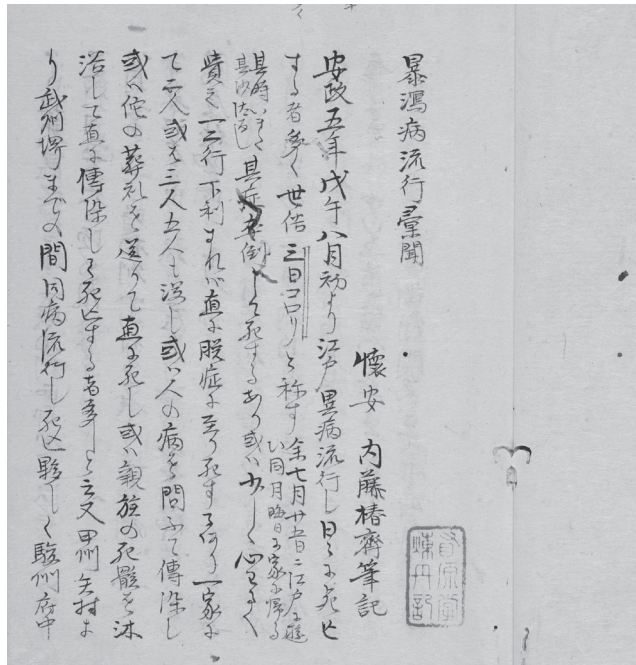 暴瀉病流行彙聞
懐安　内藤椿齊筆記
安政五年戊午八月初より江戸異病流行し日々に死亡
する者多く世俗三日コロリと称す余七月廿五日ニ江戸に
同月晦日に家に帰る
其時いまた
其症卒倒して死するあり或ハ少しく心
一二行下利すれハ直に脱症に至り死する何り一家に
て二人或は三人五人も没し或ハ人の病を問ふて傳染し
或ハ他の葬礼を送りて直に死し或ハ親族の死骸を沐
浴して直に傳染して死亡する者多しと云又甲州矢村よ
り武州堺までの間同病流行し死亡夥しく駿州府中